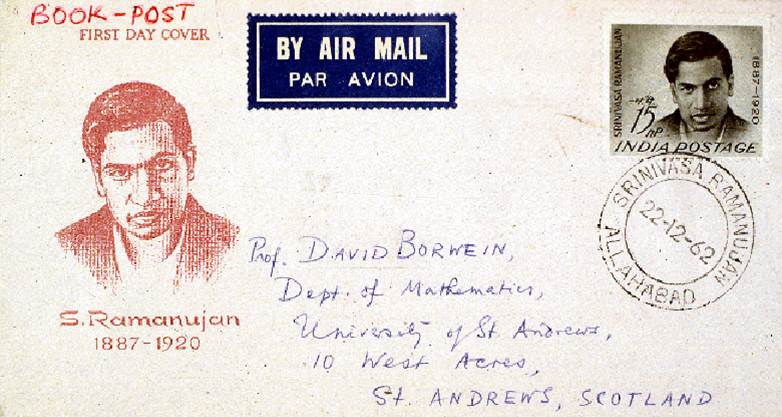 BOOK-POST
FIRST DAY COVER
BY AIR MAIL
PAR AVION
SRINIVASA RAMANUJAN
1887-1920
न.पै.
15 nP
INDIA POSTAGE
SRINIVASA RAMANUJAN
22-12-62
ALLAHABAD
S. Ramanujan
1887-1920
Prof. DAVID BORWEIN,
Dept. of Mathematics,
University of St Andrews,
10 West Acres,
St. ANDREWS, SCOTLAND